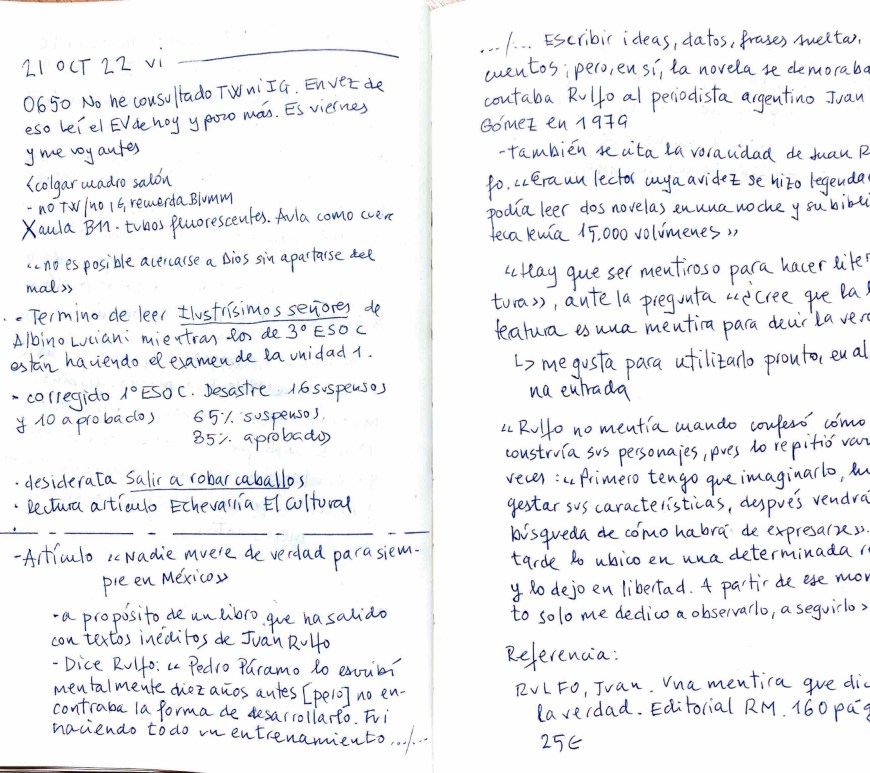 21 OCT 22 vi
0650 No he consultado TW ni IG. En vez de
eso leí el EV de hoy y poco más. Es viernes
y me voy antes
<colgar cuadro salón
- no TW/no IG, recuerda
X aula B11 - tubos fluorescentes. Aula como
«no es posible acercarse a Dios sin apartarse del
mal»
• Termino de leer Ilustrísimos señores de
Albino Luciani mientras los de 3º ESO C
están haciendo el examen de la unidad 1.
- corregido 1º ESO C. Desastre 16 suspensos
y 10 aprobados 65% suspensos,
35% aprobados
• desiderata Salir a robar caballos
• Lectura artículo Echevarría El Cultural
- Artículo «Nadie muere de verdad para siem-
pre en México»
- a propósito de un libro que ha salido
con textos inéditos de Juan Rulfo
- Dice Rulfo: «Pedro Páramo lo escribí
mentalmente diez años antes [pero] no en-
contraba la forma de desarrollarlo. Fui
haciendo todo un entrenamiento .../...
.../... Escribir ideas, datos, frases sueltas,
cuentos; pero, en sí, la novela se demoraba
contaba Rulfo al periodista argentino Juan
Gómez en 1979
- también se cita la voracidad de Juan R
fo. «Era un lector cuya avidez se hizo legenda
podía leer dos novelas en una noche y su bibli
teca tenía 15.000 volúmenes»
«Hay que ser mentiroso para hacer lite
tura», ante la pregunta «¿Cree que la
teatura es una mentira para decir la ver
↳ me gusta para utilizarlo pronto, en al
na entrada
«Rulfo no mentía cuando confesó cómo
construía sus personajes, pues lo repitió var
veces: «Primero tengo que imaginarlo, lu
gestar sus características, después vendrá
búsqueda de cómo habrá de expresarse».
tarde lo ubico en una determinada r
y lo dejo en libertad. A partir de ese mom
to solo me dedico a observarlo, a seguirlo»
Referencia:
RULFO, Juan. Una mentira que dic
la verdad. Editorial RM. 160 pág
25€